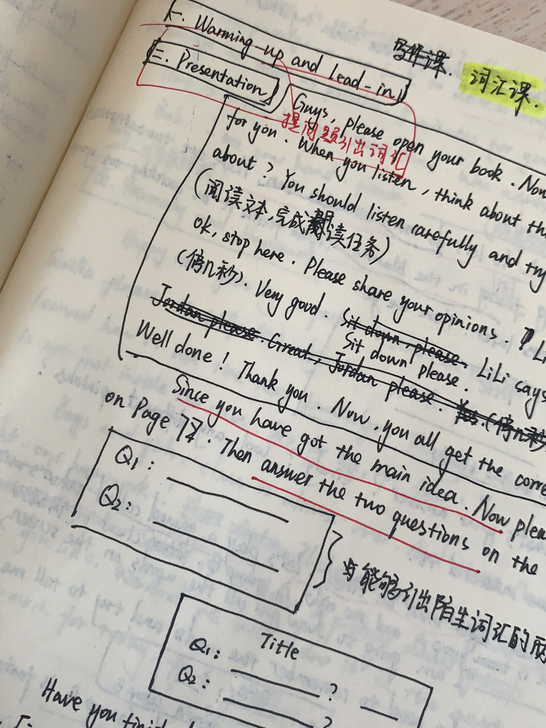 写作课. 词汇课.
二. Warming-up and Lead-in
三. Presentation
Guys, please open your book. Now
提问题引出词汇
for you. When you listen, think about th
about? You should listen carefully and try
(阅读文本,完成阅读任务)
ok, stop here. Please share your opinions.
(停几秒). Very good. Sit down, please. LiLi says
Sit down please.
Jordan please. Great, Jordan please. (停几秒
Well done! Thank you. Now, you all get the corre
Since you have got the main idea. Now plea
on Page 17. Then answer the two questions on the
Q1:
Q2:
与能够引出陌生词汇的
Title
Q1: ?
Q2: ?
Have you